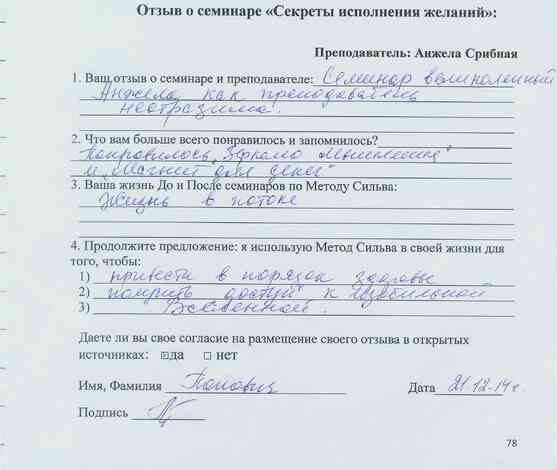 Отзыв о семинаре «Секреты исполнения желаний»:
Преподаватель: Анжела Срибная
1. Ваш отзыв о семинаре и преподавателе: Семинар великолепный
Анжела как преподаватель
неотразима.
2. Что вам больше всего понравилось и запомнилось?
Понравилось „Зеркало
и „Магнит для денег"
3. Ваша жизнь До и После семинаров по Методу Сильва:
Жизнь в потоке
4. Продолжите предложение: я использую Метод Сильва в своей жизни для
того, чтобы:
1) привести в порядок здоровье
2) получить доступ к изобильной
3) Вселенной.
Даете ли вы свое согласие на размещение своего отзыва в открытых
источниках: да нет
Имя, Фамилия Попович Дата 21.12.14г.
Подпись
78